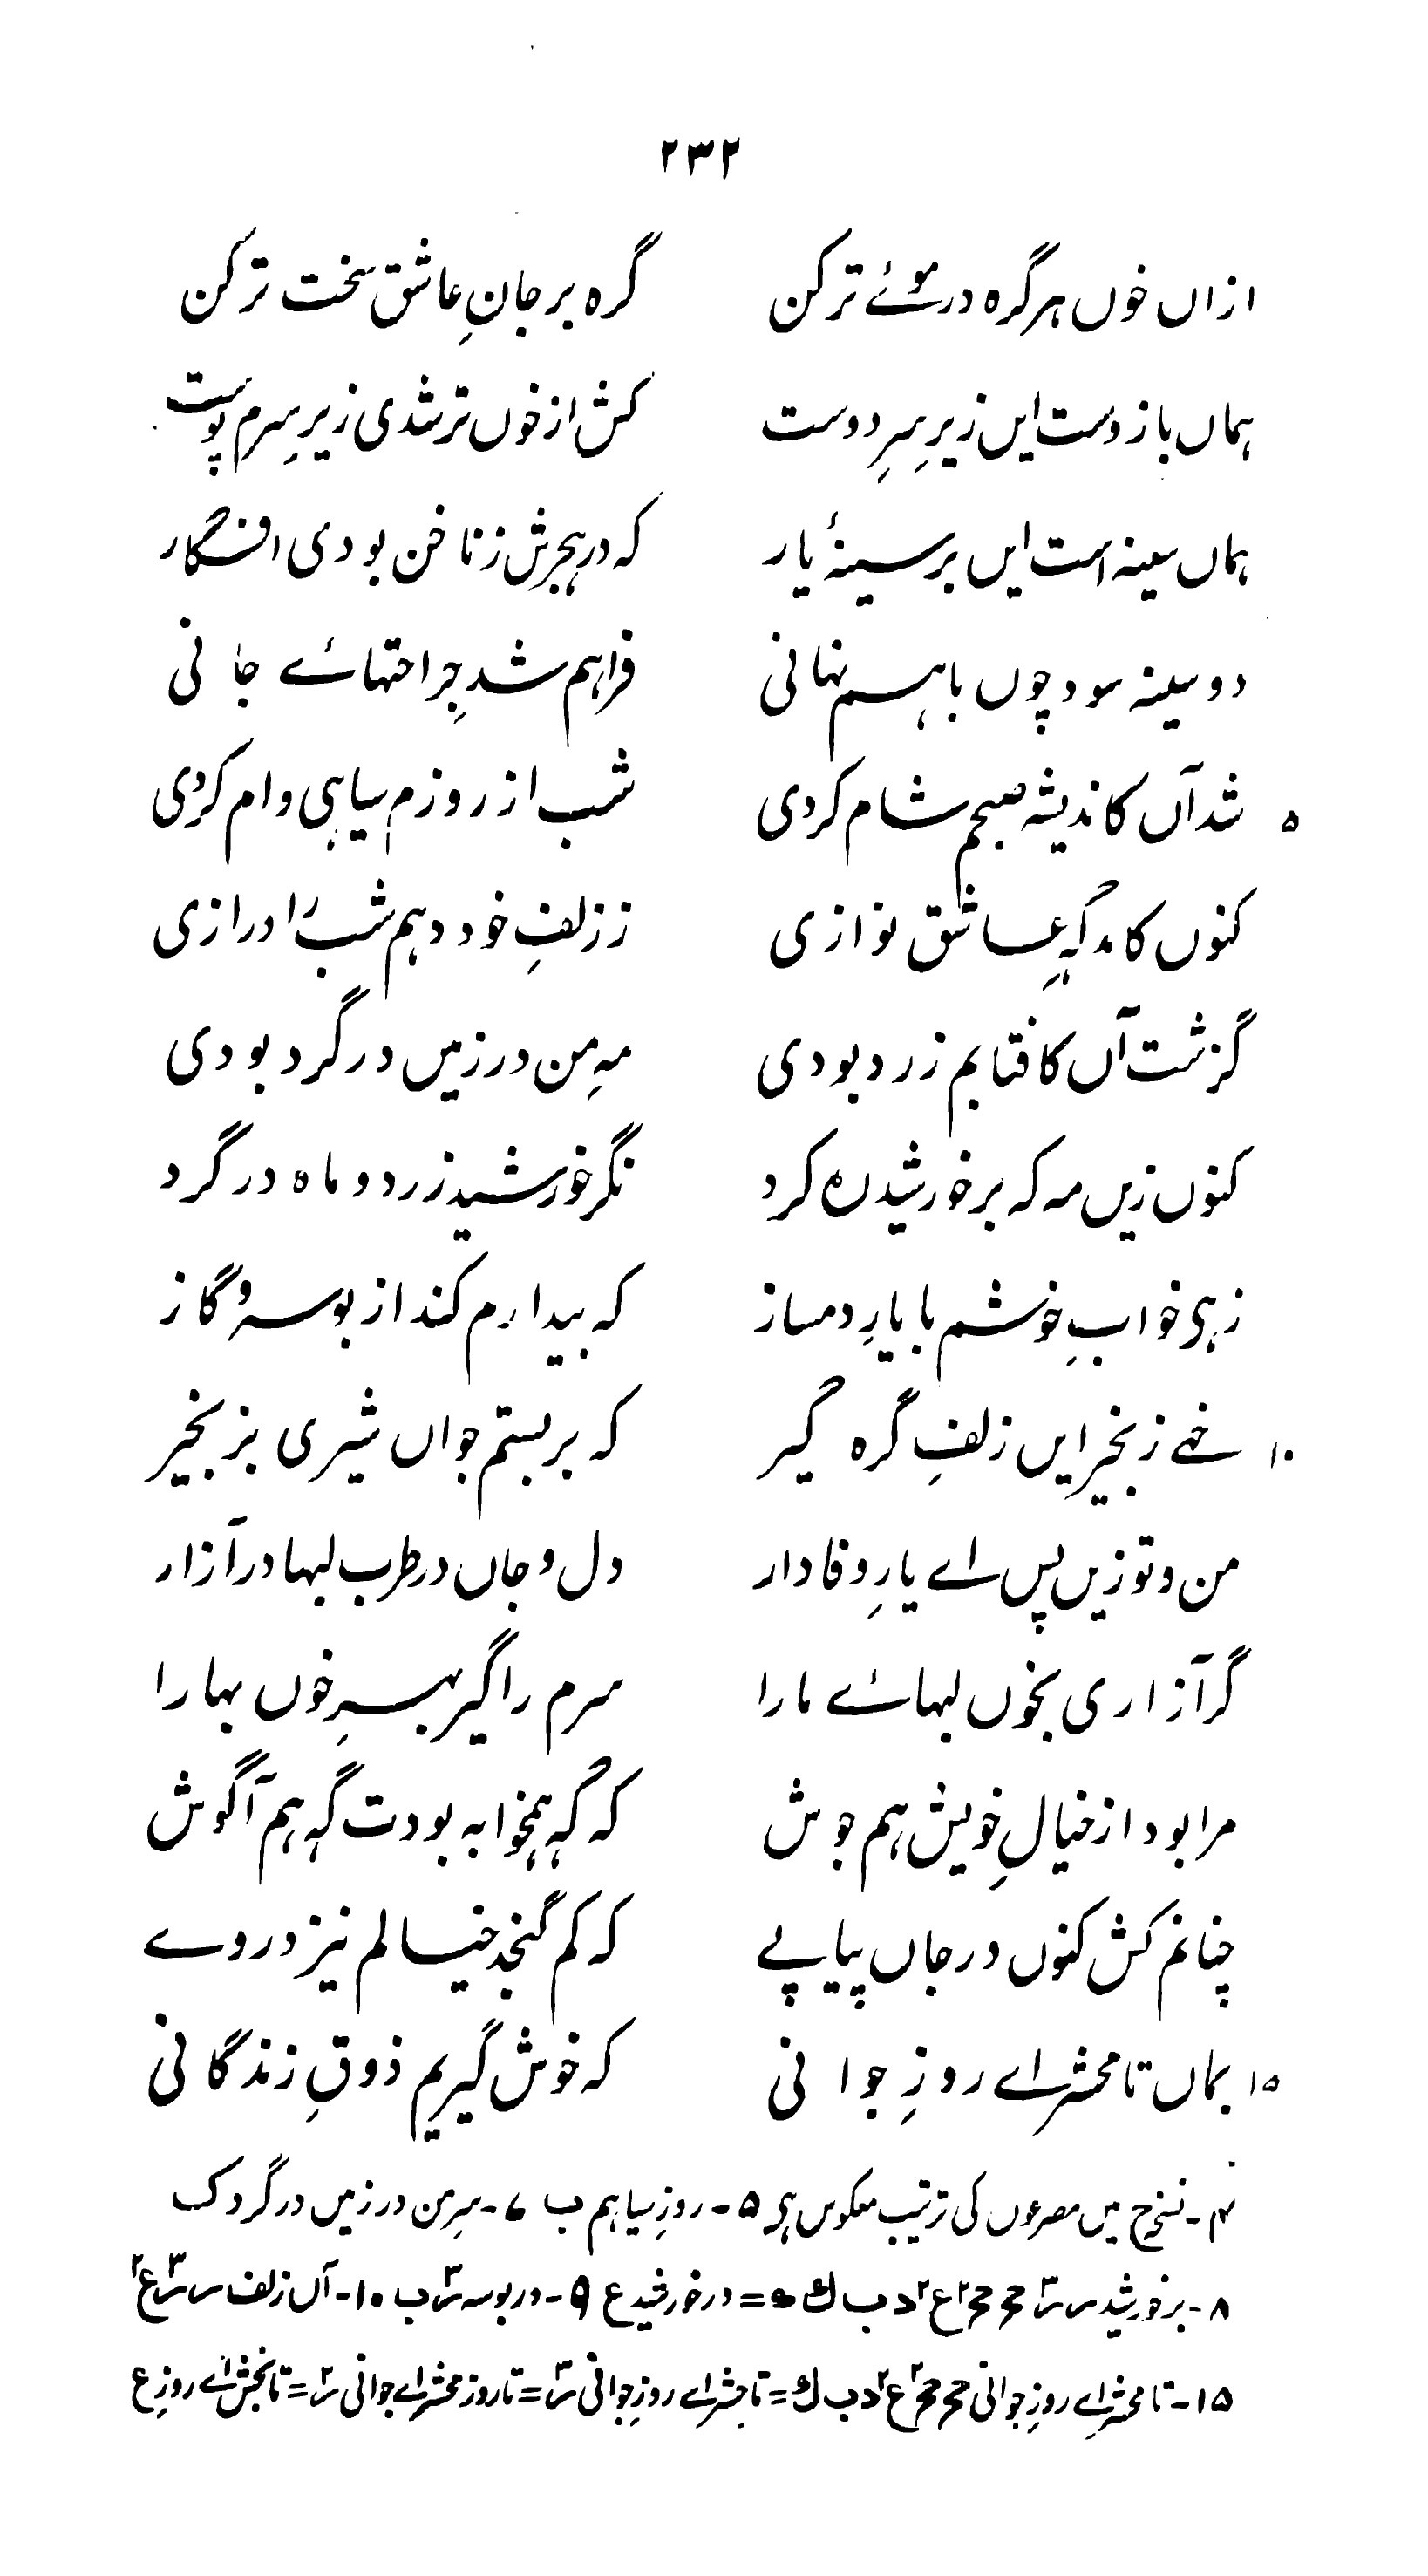 ۲۳۲
ازاں خوں ہر گرہ در موئے تر کن گرہ بر جانِ عاشق سخت تر کن
ہماں بازوست ایں زیرِ سرِ دوست کش از خوں تر شدی زیرِ سرم پوست
ہماں سینہ است ایں بر سینۂ یار کہ در ہجرش ز ناخن بودی افگار
دو سینہ سود چوں باہم نہانی فراہم شد جِراحتہائے جانی
۵ شد آں کاندیشہ صبحم شام کردی شب از روزم سیاہی وام کردی
کنوں کامد گہِ عاشق نوازی ز زلفِ خود دہم شب را درازی
گزشت آں کافتابم زرد بودی مہِ من در زمیں در گرد بودی
کنوں زیں مہ کہ بر خورشید رہ کرد نگر خورشید زرد و ماہ در گرد
زہی خوابِ خوشم با یارِ دمساز کہ بیدارم کند از بوسہ و گاز
۱۰ خہے زنجیر ایں زلفِ گرہ گیر کہ بر بستم جواں شیری بزنجیر
من و تو زیں پس اے یارِ وفادار دل و جاں در طرب لبہا در آزار
گر آزاری بخوں لبہائے ما را سرم را گیر بہرِ خوں بہا را
مرا بود از خیالِ خویش ہم جوش کہ گہ ہمخوابہ بودت گہ ہم آگوش
چنانم کش کنوں در جاں پیاپے کہ کم گنجد خیالم نیز در وے
۱۵ بماں تا محشر اے روزِ جوانی کہ خوش گیریم ذوقِ زندگانی
۴۔ نسخہ ح میں مصرعوں کی ترتیب معکوس ہے ۵۔ روزِ سیاہم ب ۷۔ سرِ من در زمیں در گرد ک
۸۔ بر خورشید = در خورشید ع ۹۔ در بوسہ ب ۱۰۔ آں زلف
۱۵۔ تا محشر اے روزِ جوانی = تا حشر اے روزِ جوانی = تا روز محشر اے جوانی = اے روزِ ع